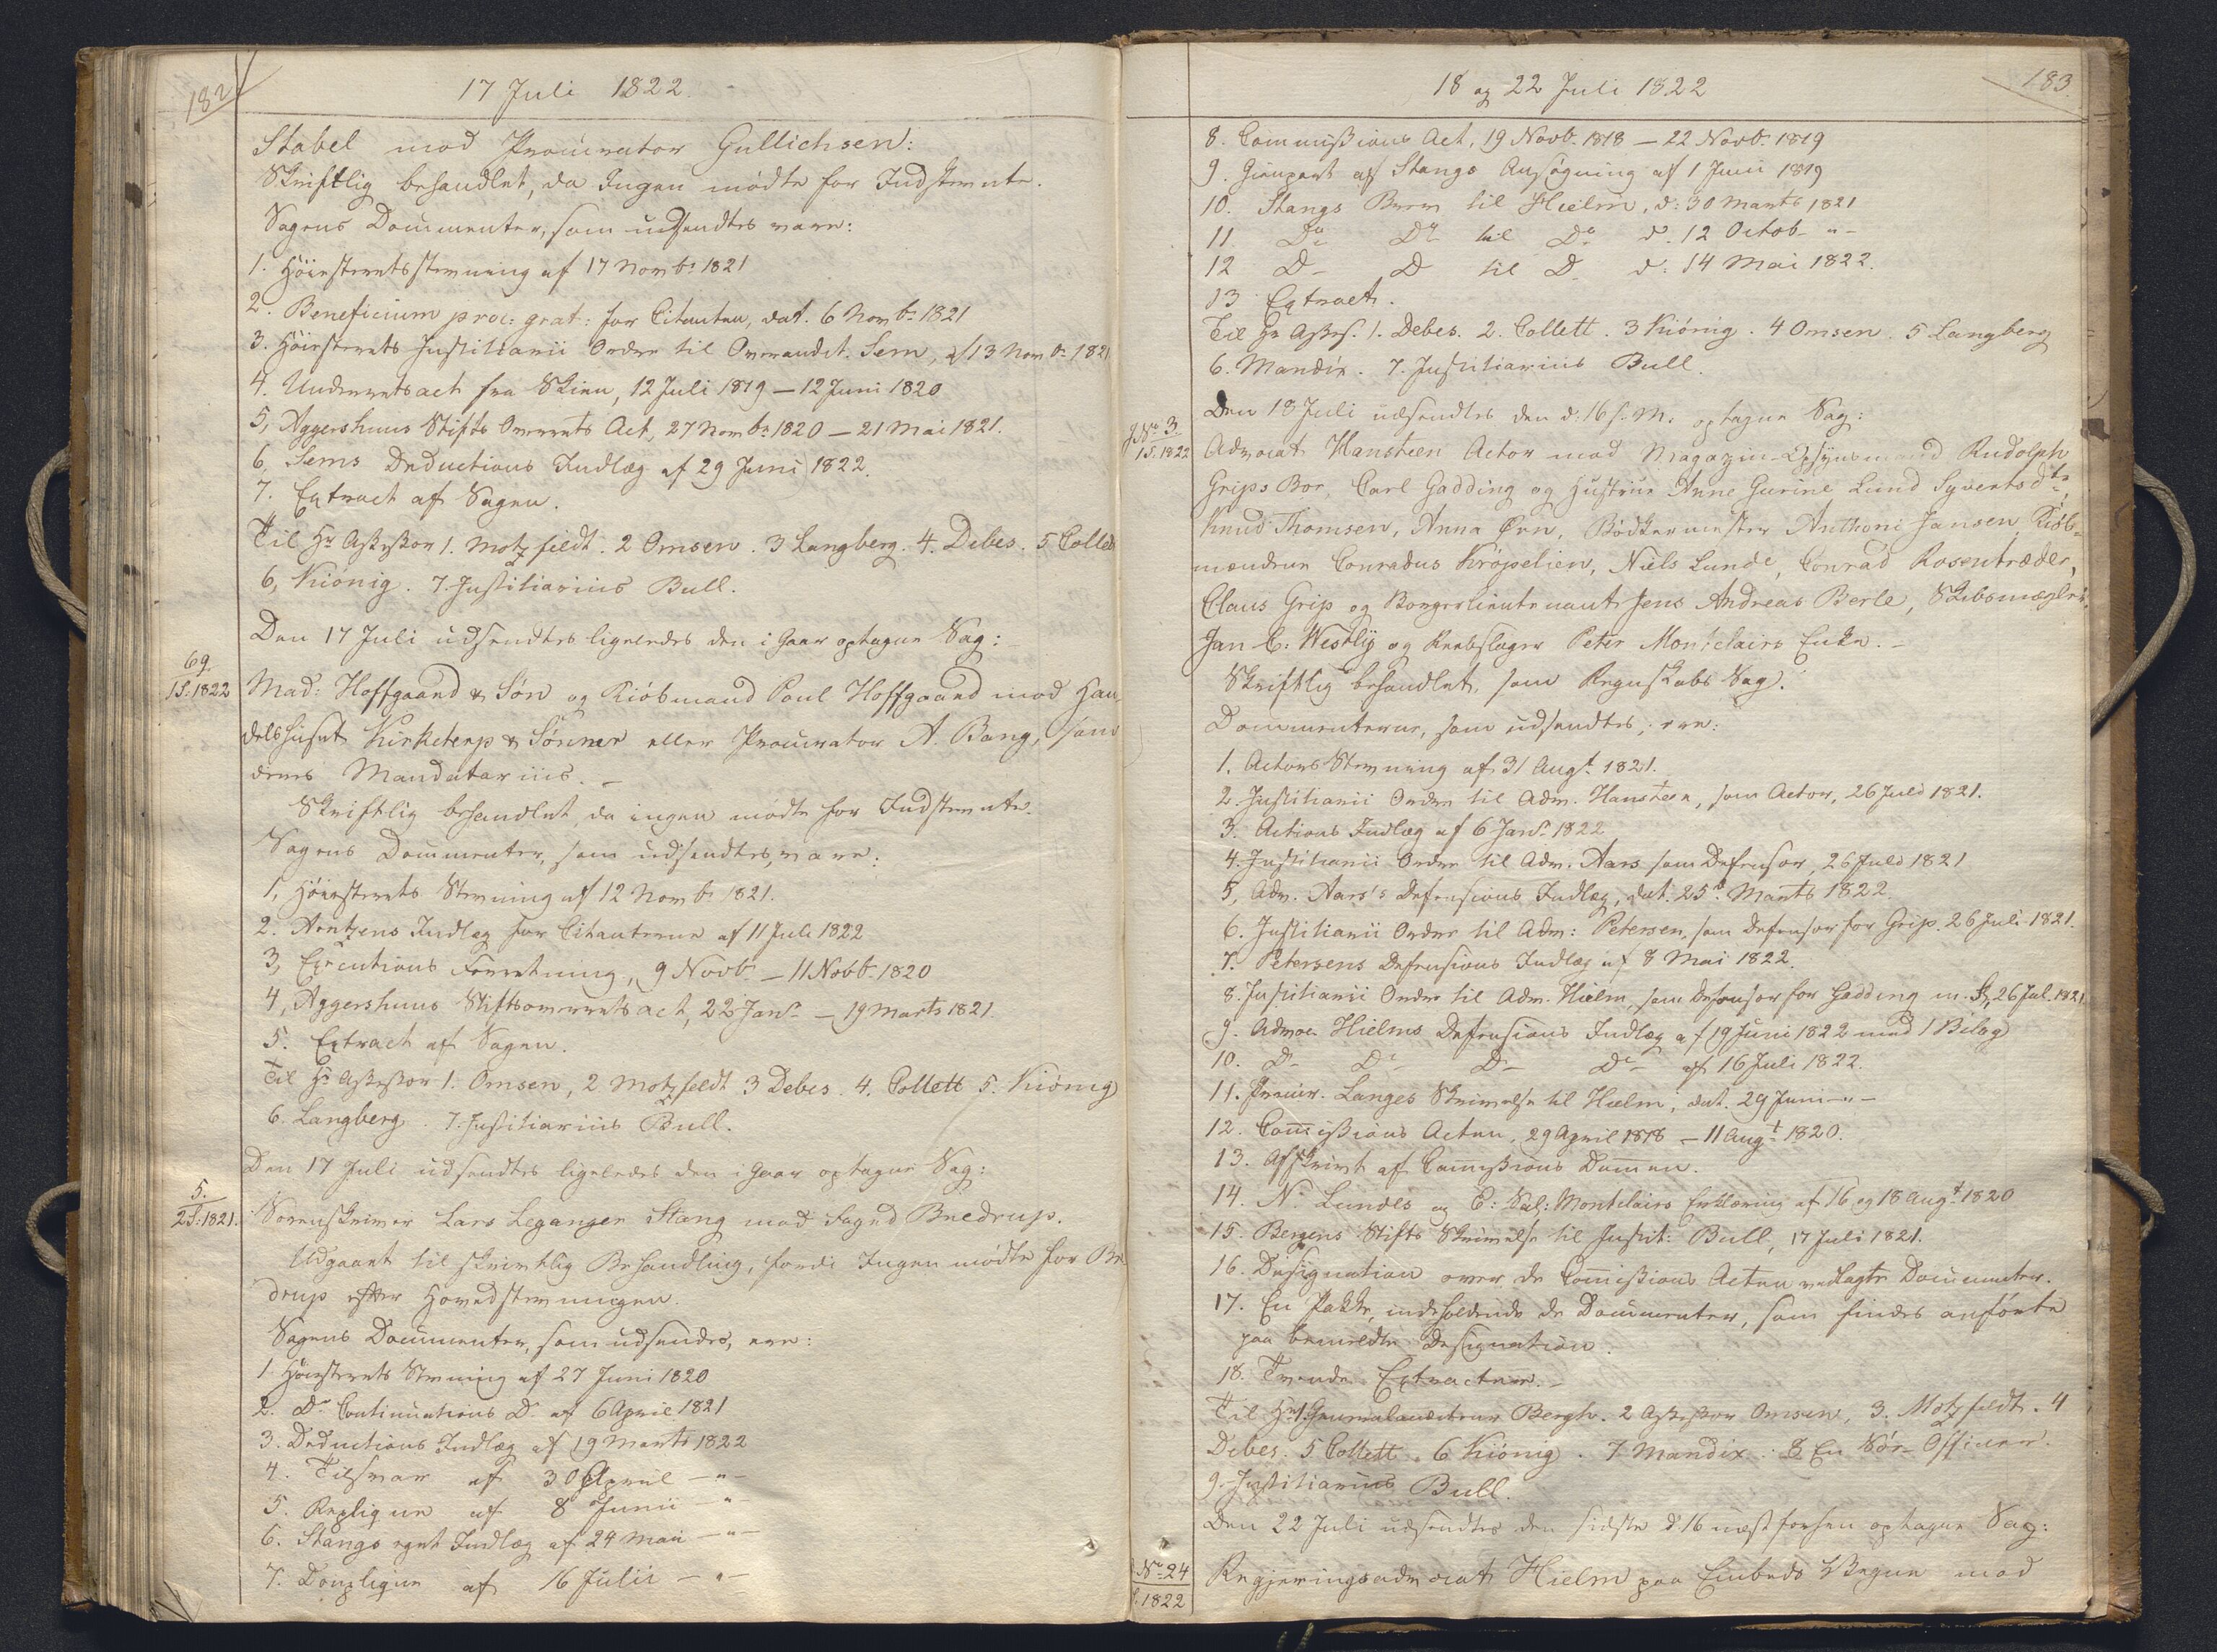 182
17 Juli 1822.
Stabel mod Procurator Gullichsen:
Skriftlig behandlet, da Ingen mødte for Indstevnte.
Sagens Documenter, som udsendtes vare:
1. Høiesteretsstevning af 17 Novbr 1821
2. Beneficium proc: grat: for Citanten, dat. 6 Novbr 1821
3. Høiesterets Justitiarii Ordre til Overaudit. Sem, af 13 Novbr 1821
4. Underretsact fra Skien, 12 Juli 1819 – 12 Juni 1820
5, Aggershuus Stifts Overrets Act, 27 Novbr 1820 – 21 Mai 1821.
6, Sems Deductions Indlæg af 29 Juni 1822.
7. Extract af Sagen.
Til Hr Assessor 1. Motzfeldt. 2 Omsen. 3 Langberg. 4. Debes. 5 Collett
6, Kiønig. 7. Justitiarius Bull.
Den 17 Juli udsendtes ligeledes den i Gaar optagne Sag:
69.
1S.1822
Mad: Hoffgaard & Søn og Kiøbmand Poul Hoffgaard mod Han-
delshuset Kirketerp & Sønner eller Procurator A. Bang, som
deres Mandatarius. –
Skriftlig behandlet da ingen mødte for Indstevnte.
Sagens Documenter, som udsendtes, vare:
1, Høiesterets Stevning af 12 Novbr 1821.
2. Arntzens Indlæg for Citanterne af 11 Juli 1822
3, Executions Forretning, 9 Novb – 11 Novb. 1820
4, Aggershuus Stiftsoverrets act, 22 Janr – 19 Marts 1821.
5. Extract af Sagen.
Til Hr Assessor 1. Omsen, 2 Motzfeldt 3 Debes. 4. Collett 5. Kiønig
6. Langberg. 7. Justitiarius Bull.
Den 17 Juli udsendtes ligeledes den i Gaar optagne Sag:
5.
2S:1821.
Sorenskriver Lars Leganger Stang mod Foged Bredrup.
Udgaaet til skrivtlig Behandling, fordi Ingen mødte for Bre
drup efter Hovedstevningen.
Sagens Documenter, som udsendes, ere:
1. Høiesterets Stevning af 27 Juni 1820
2. Do Continuations Do af 6 April 1821
3. Deductions Indlæg af 19 Marts 1822
4. Tilsvar af 30 April – " –
5. Repliqve af 8 Junii – " –
6. Stangs eget Indlæg af 24 Mai – " –
7. Dupliqve af 16 Julii – " –
18 og 22 Juli 1822
183.
8. Commissions Act, 19 Novb. 1818 – 22 Novb. 1819
9. Gienpart af Stangs Ansøgning af 1 Juni 1819
10. Stangs Brev til Hielm, d: 30 Marts 1821
11 Do Do til Do d. 12 Octob – " –
12 D– D til D d. 14 Mai 1822.
13 Extract.
Til Hr Assess. 1. Debes. 2. Collett. 3 Kiønig. 4 Omsen. 5 Langberg
6. Mandix. 7. Justitiarius Bull.
Den 18 Juli udsendtes den d. 16 s. M. optagne Sag:
No 3.
1S.1822
Advocat Hansteen Actor mod Magazin-Opsynsmand Rudolph
Grips Boe, Carl Gadding og Hustrue Anne Gurine Lund Syvertsdtr,
Knud Thomsen, Anna Ørn, Bødkermester Anthoni Jansen, Kiøb-
mændene Conradus Krøpelien, Niels Lunde, Conrad Rosentræder,
Claus Grip og Borgerlieutenant Jens Andreas Berle, Skibsmægler
Jan C: Westly og Reebslager Peter Montclairs Enke. –
Skriftlig behandlet, som Regnskabs Sag.
Documenterne, som udsendtes, ere:
1. Actors Stevning af 31 Augt 1821.
2. Justitiarii Ordre til Adv. Hansteen, som Actor, 26 Juli 1821.
3. Actions Indlæg af 6 Janr 1822
4. Justitiarii Ordre til Adv. Aars som Defensor, 26 Juli 1821
5, Adv. Aars's Defensions Indlæg, dat. 25d Marts 1822.
6. Justitiarii Ordre til Adv: Petersen, som Defensor for Grip. 26 Juli 1821.
7. Petersens Defensions Indlæg af 8 Mai 1822.
8. Justitiarii Ordre til Adv. Hielm, som Defensor for Gadding m. fl, 26 Jul. 1821
9. Advoc Hielms Defensions Indlæg af 19 Juni 1822 med 1 Bilag
10. D– Do– D– Do– af 16 Juli 1822.
11. Procur. Langes Skrivelse til Hielm, dat. 29 Juni – " –
12. Commissions Acten, 29 April 1818 – 11 Augt 1820.
13. Afskrivt af Commissions Dommen.
14. N. Lundes og C: Sal: Montclairs Erklæring af 16 og 18 Augt 1820
15. Bergens Stifts Skrivelse til Justit: Bull, 17 Juli 1821.
16. Designation over de Commissions Acten vedlagte Documenter.
17. En Pakke, indeholdende de Documenter, som findes anførte
paa bemeldte Designation.
18. Trende Extracter. –
Til Hr 1. Generalauditeur Bergh. 2 Assessor Omsen, 3. Motzfeldt. 4
Debes. 5 Collett. 6 Kiønig. 7 Mandix. 8 En Søe-Officeer.
9. Justitiarius Bull.
Den 22 Juli udsendtes den sidste d. 16 næstforhen optagne Sag:
No 24
1822
Regjeringsadvocat Hielm paa Embeds Vegne mod